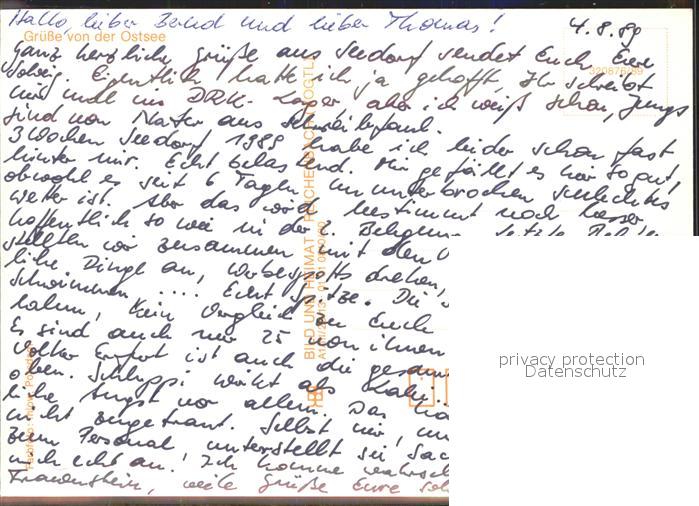 Hallo, lieber Bernd und lieber Thomas! 4.8.89
Grüße von der Ostsee
Ganz herzliche Grüße aus Seedorf sendet Euch Eure
Solveig. Eigentlich hatte ich ja gehofft, Ihr schreibt
mir mal ins DRK-Lager, aber ich weiß schon, Jungs
sind von Natur aus schreibfaul.
3 Wochen Seedorf 1989 habe ich leider schon fast
hinter mir. Echt belastend. Mir gefällt es hier so gut,
obwohl es seit 6 Tagen ununterbrochen schlechtes
Wetter ist. Aber das wird bestimmt noch besser
hoffentlich so wie in der 2. Belegung. Letzte
stellten wir zusammen mit den
liche Dinge an, Werbespotts drehen,
schwimmen .... Echt Spitze. Die
lahm, kein Vergleich zu Euch
Es sind auch nur 25 von ihnen
Volker Erfurt ist auch die gesam
oben. Schluppi wirkt als
liche Angst vor allem. Das
nicht zugetraut. Selbst mir,
zum Personal unterstellt sie Sac
mich echt an! Ich komme wahrsch
Frauenstein, viele Grüße Eure Sol
320876/89
BILD UND HEIMAT REICHENBACH (VOGTL)
privacy protection
Datenschutz